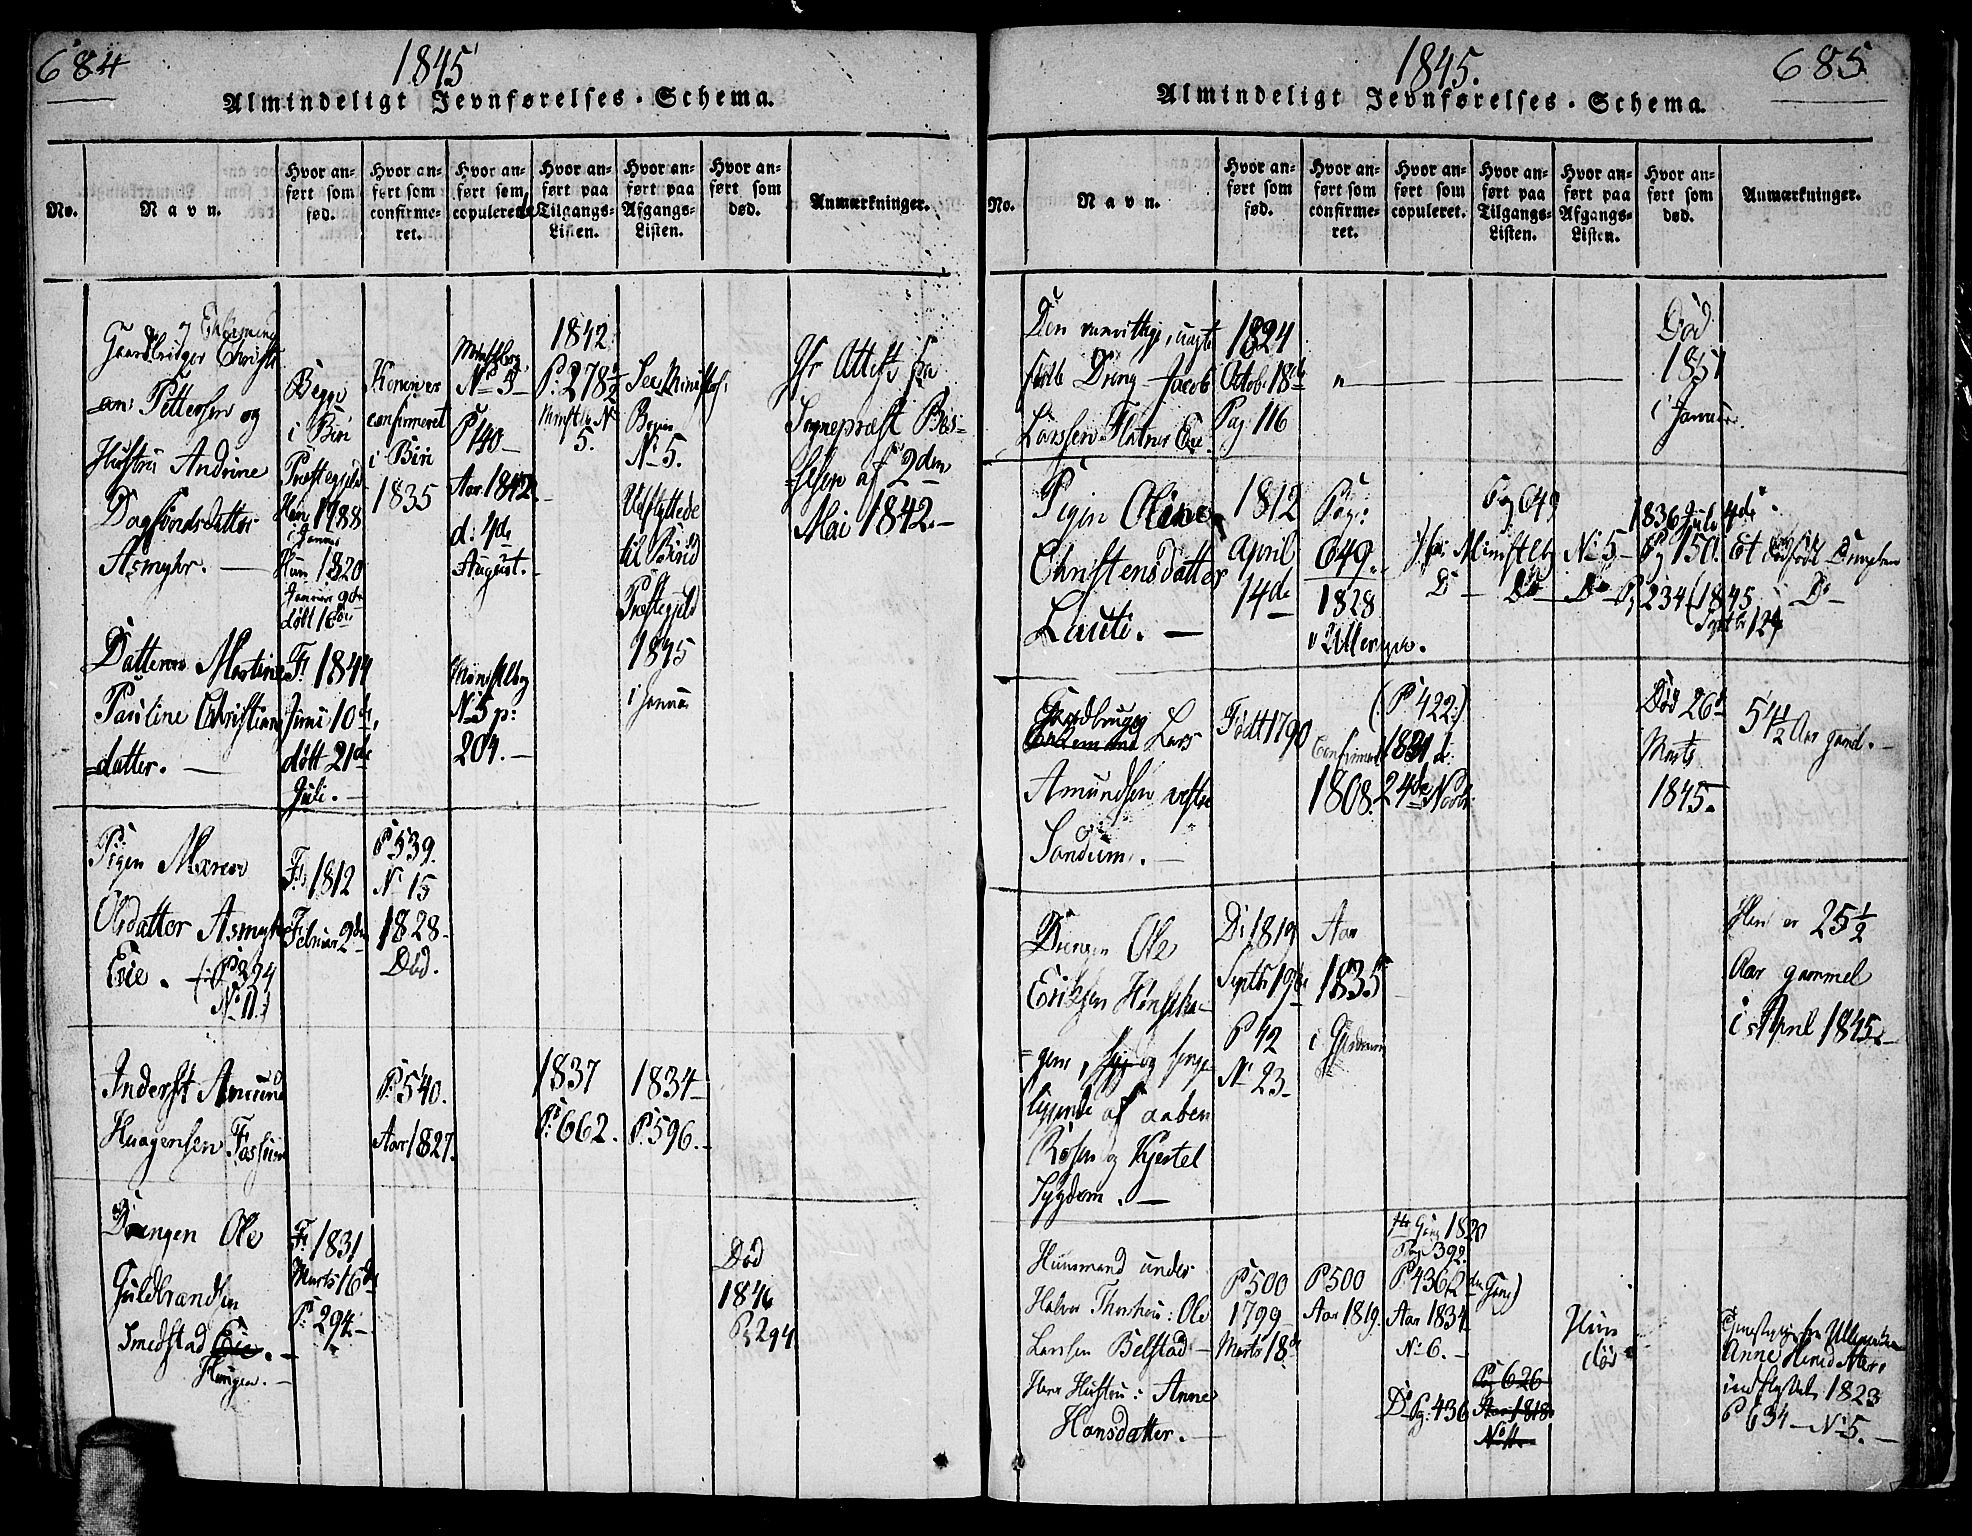 684
1845
Almindeligt Jevnførelses-Schema.
No.
Navn.
Hvor an-
ført som
fød.
Hvor an-
ført som
confirme-
ret.
Hvor an-
ført som
copulerede
Hvor an-
ført paa
Tilgangs-
Listen.
Hvor an-
ført paa
Afgangs-
Listen.
Hvor an-
ført som
død.
Anmærkninger.
Gaardbruger Christi
-an Pettersen og
Hustru Andrine
Dagfindsdatter
Asmyhr. —
Begge
i Biri
Præstegjeld
Han 1788
Hun 1820
Januar 9de
døbt 16de
Konen er
confirmeret
i Biri
1835
Ministbog
No 5
P 140
Aar 1842
d: 4de
August.
1842
P: 278½
Ministb. No
5.
See Minist
Bogen
No 5.
Udflyttede
til
Præstegjeld
1845
i Janua
Attest fra
Sognepræst
af 2den
Mai 1842.—
Datteren Martine
Pauline Christians
-datter. —
Fd 1844
Juni 10de,
døbt 21de
Juli. —
Ministbog
No 5 p:
204.—
Pigen Maren
Olsdatter Asmyhr
Eie. — (P 324
No 11.)
Fd 1812
Februar 2de
P 539.
No 15
1828.
Død.
Inderst Amund
Haagensen Fossum
P: 540.
Aar 1827.
1837
P: 662.
1834
P. 596.
Drengen Ole
Guldbrandsen
Smedstad Eie. —
Fd 1831
Marts 16de
P: 294.—
Død
1846
P 294
1845.
685
Almindeligt Jevnførelses-Schema.
No.
Navn.
Hvor an-
ført som
fød.
Hvor an-
ført som
confirme-
ret.
Hvor an-
ført som
copuleret.
Hvor an-
ført paa
Tilgangs-
Listen.
Hvor an-
ført paa
Afgangs-
Listen.
Hvor an-
ført som
død.
Anmærkninger.
Den vanvittige, uægte
fødte Dreng Jacob
Larssen Flatner Eie
1824
Octob. 18de
Pag 116
"
Død
1851
i Januar.
Pigen Oline
Christensdatter
Laute. —
1812
April
14de
Pag:
649.
1828
Ullensager.
Pag 649
i Ministbg No 5
Do — Do — Do
1836 Juli 4de
Pg 150.
Pg 234 (1845
Septbr 12te
Et Drengebarn
Do —
Gaardbruger
Lars
Amundsen vestre
Sandum. —
Født 1790
Confirmeret
1808.
(P 422)
1821 d:
24de Novbr
Død 26de
Marts
1845.
54½ Aar gaml. —
Drengen Ole
Eriksen
-gen, og senge
liggende af aaben
Rosen og Kjertel
Sygdom. —
Do 1819
Septbr 19de
P 42
No 23—
Aar
1835
i Gjerdrum
Han er 25½
Aar gammel
i April 1845.—
Huusmand under
Ole
Larsen Belstad —
Hans Hustru: Anne
Hansdatter. —
P 500
1799—
Marts 18de
P 500
Aar 1819.
1ste Gang 1820
Pag 392.
P. 436 (2den Gang)
Aar 1834
No 6. —
Do Pg: 436
Pag 626
Aar 1818
No 11
Hun
død
fra Ullensaker
Anne
indflyttet 1823
P 634—No 5. —